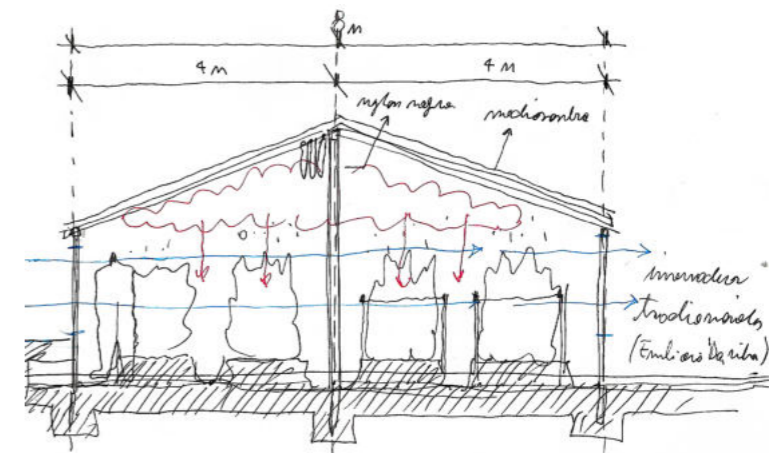 8 M
4 M
4 M
nylon negro
mediasombra
invernadero
tradicional
(Emiliano